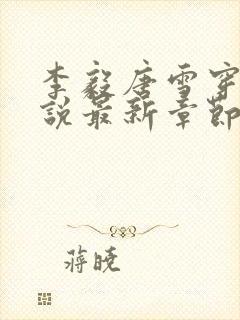 李毅唐雪穿
说最新章节
蒋晓